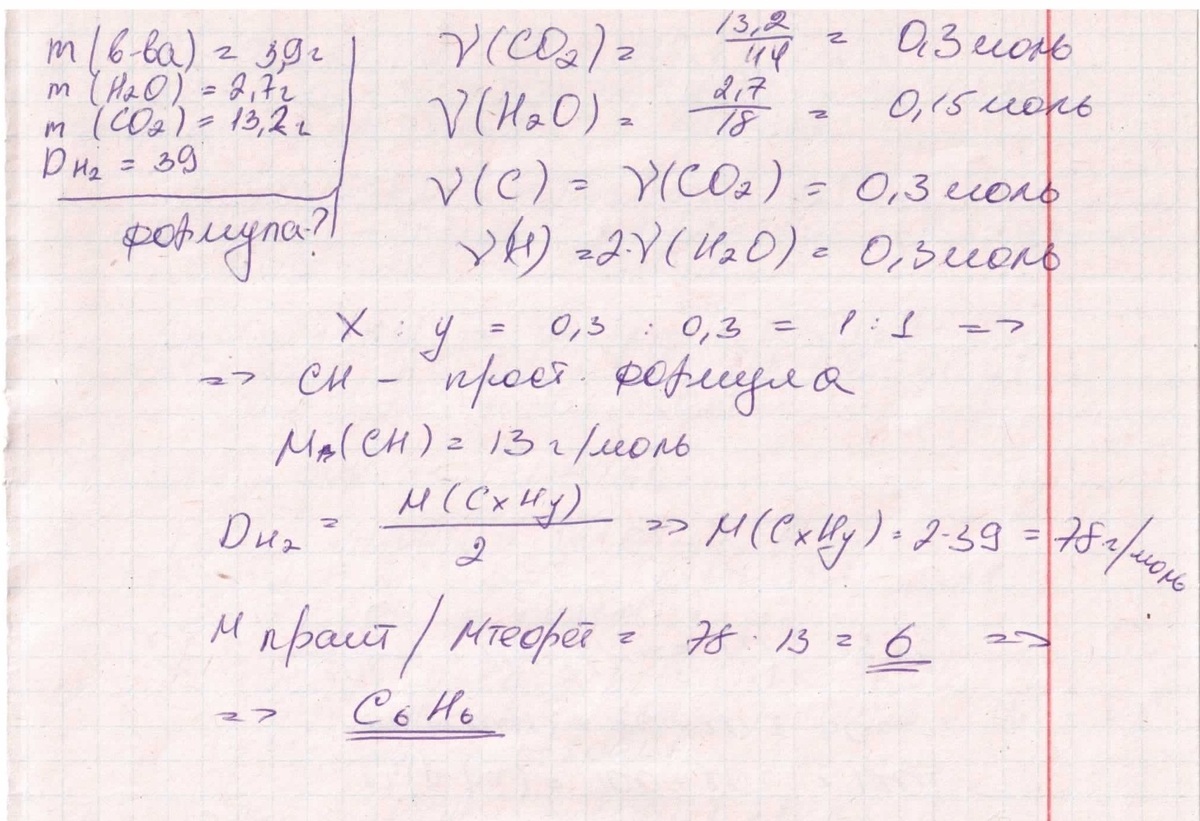 m (в-ва) = 3,9 г
m (H₂O) = 2,7 г
m (CO₂) = 13,2 г
Dн₂ = 39
формула-?
γ(CO₂) = 13,2/44 = 0,3 моль
γ(H₂O) = 2,7/18 = 0,15 моль
γ(C) = γ(CO₂) = 0,3 моль
γ(H) = 2·γ(H₂O) = 0,3 моль
X : y = 0,3 : 0,3 = 1 : 1 =>
=> CH - прост. формула
M(CH) = 13 г/моль
Dн₂ = M(CxHy)/2 => M(CxHy) = 2·39 = 78 г/моль
M практ / Mтеорет = 78 : 13 = 6 =>
=> C₆H₆